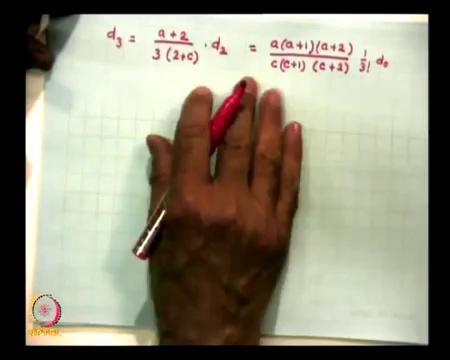 d₃ = \frac{a+2}{3(2+c)} · d₂ = \frac{a(a+1)(a+2)}{c(c+1)(c+2)} \frac{1}{3!} d₀